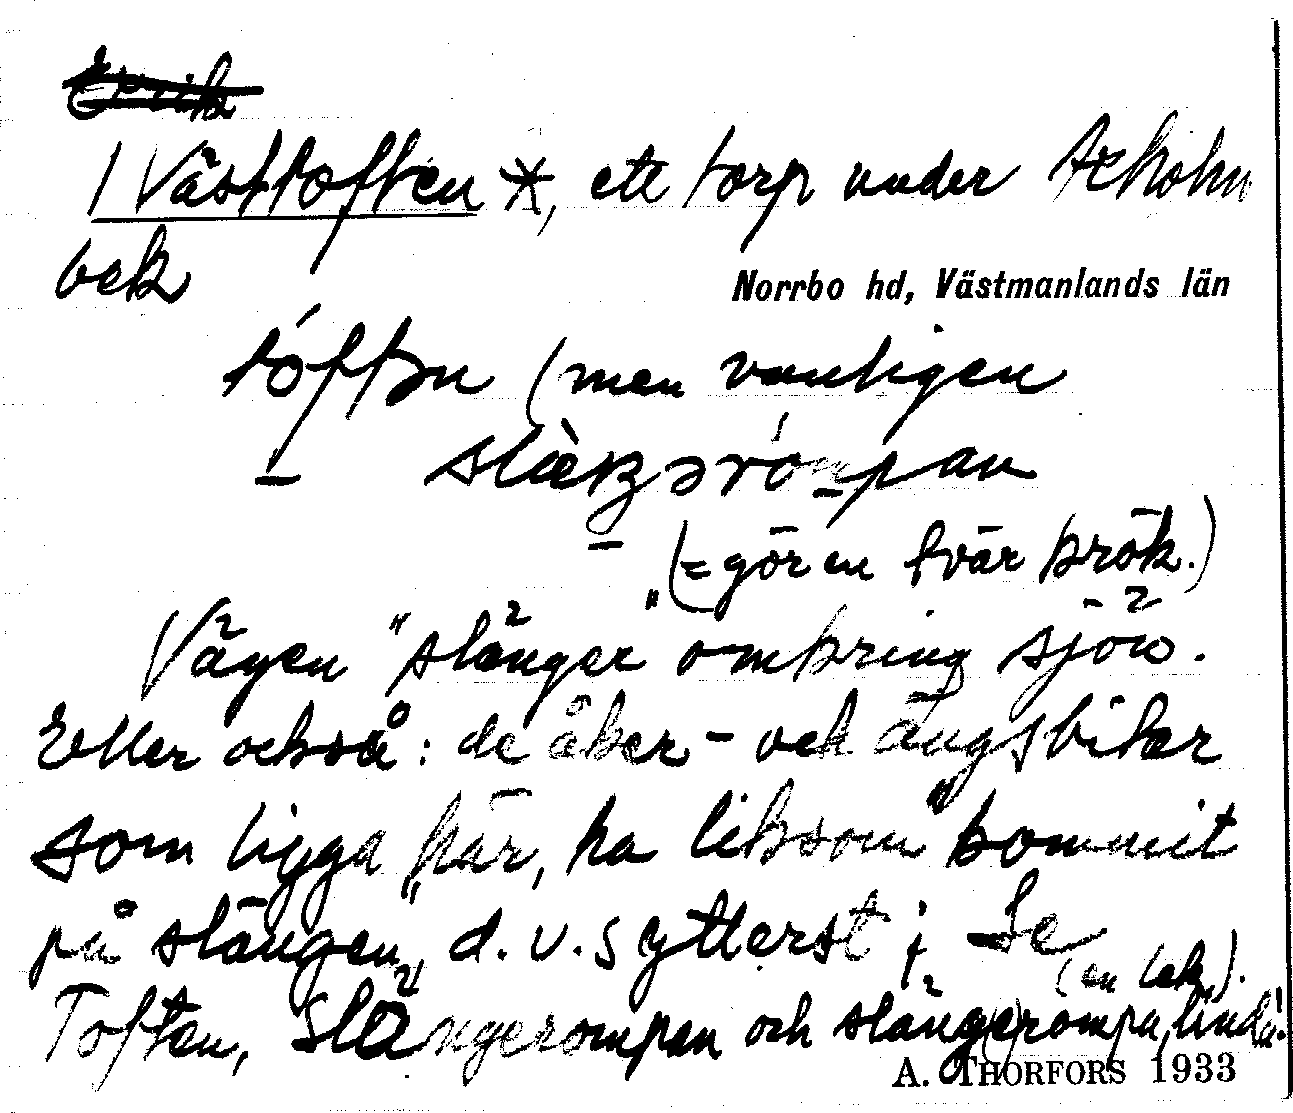 1 Västtoften *, ett torp under
bek
Norrbo hd, Västmanlands län
tóftən (men vanligen
slæŋərómpan
(= gör en tvär krök.)
Vägen "slänger" omkring sjön.
Eller också: de åker- och ängsbitar
som ligga här, ha liksom "kommit
på slängen", d.v.s ytterst; Se
(en lek).
Toften, Slängerompan och slängerompa,
A. THORFORS 1933